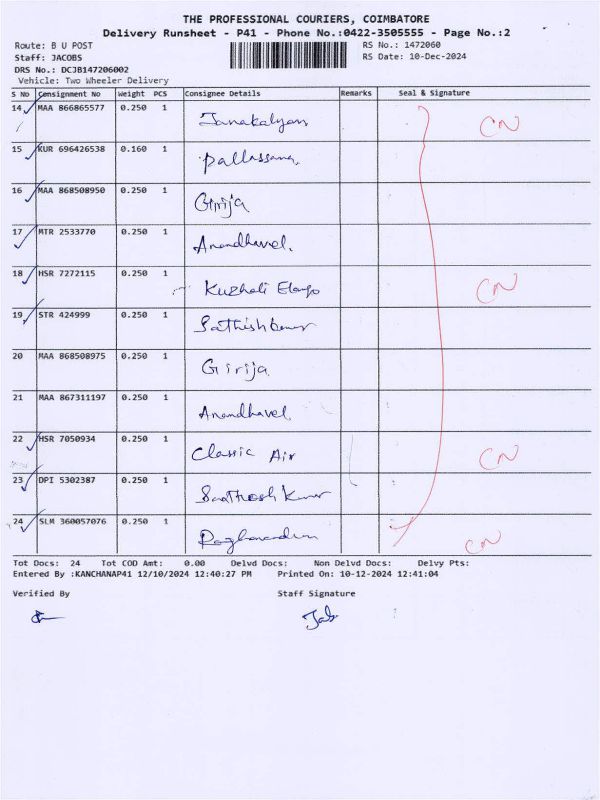 THE PROFESSIONAL COURIERS, COIMBATORE
Delivery Runsheet - P41 - Phone No.:0422-3505555 - Page No.:2
Route: B U POST
RS No.: 1472060
Staff: JACOBS
RS Date: 10-Dec-2024
DRS No.: DCJB147206002
Vehicle: Two Wheeler Delivery
S No Consignment No Weight PCS Consignee Details Remarks Seal & Signature
14 MAA 866865577 0.250 1 Janakalyan CN
15 KUR 696426538 0.160 1 Pallassana
16 MAA 868508950 0.250 1 Girija
17 MTR 2533770 0.250 1 Anandhavel.
18 HSR 7272115 0.250 1 Kuzhali Elango CN
19 STR 424999 0.250 1 Sathishkumar
20 MAA 868508975 0.250 1 Girija
21 MAA 867311197 0.250 1 Anandhavel
22 HSR 7050934 0.250 1 Classic Air CN
23 DPI 5302387 0.250 1 Santhosh Kumar
24 SLM 360057076 0.250 1 CN
Tot Docs: 24 Tot COD Amt: 0.00 Delvd Docs: Non Delvd Docs: Delvy Pts:
Entered By :KANCHANAP41 12/10/2024 12:40:27 PM Printed On: 10-12-2024 12:41:04
Verified By Staff Signature
Jab